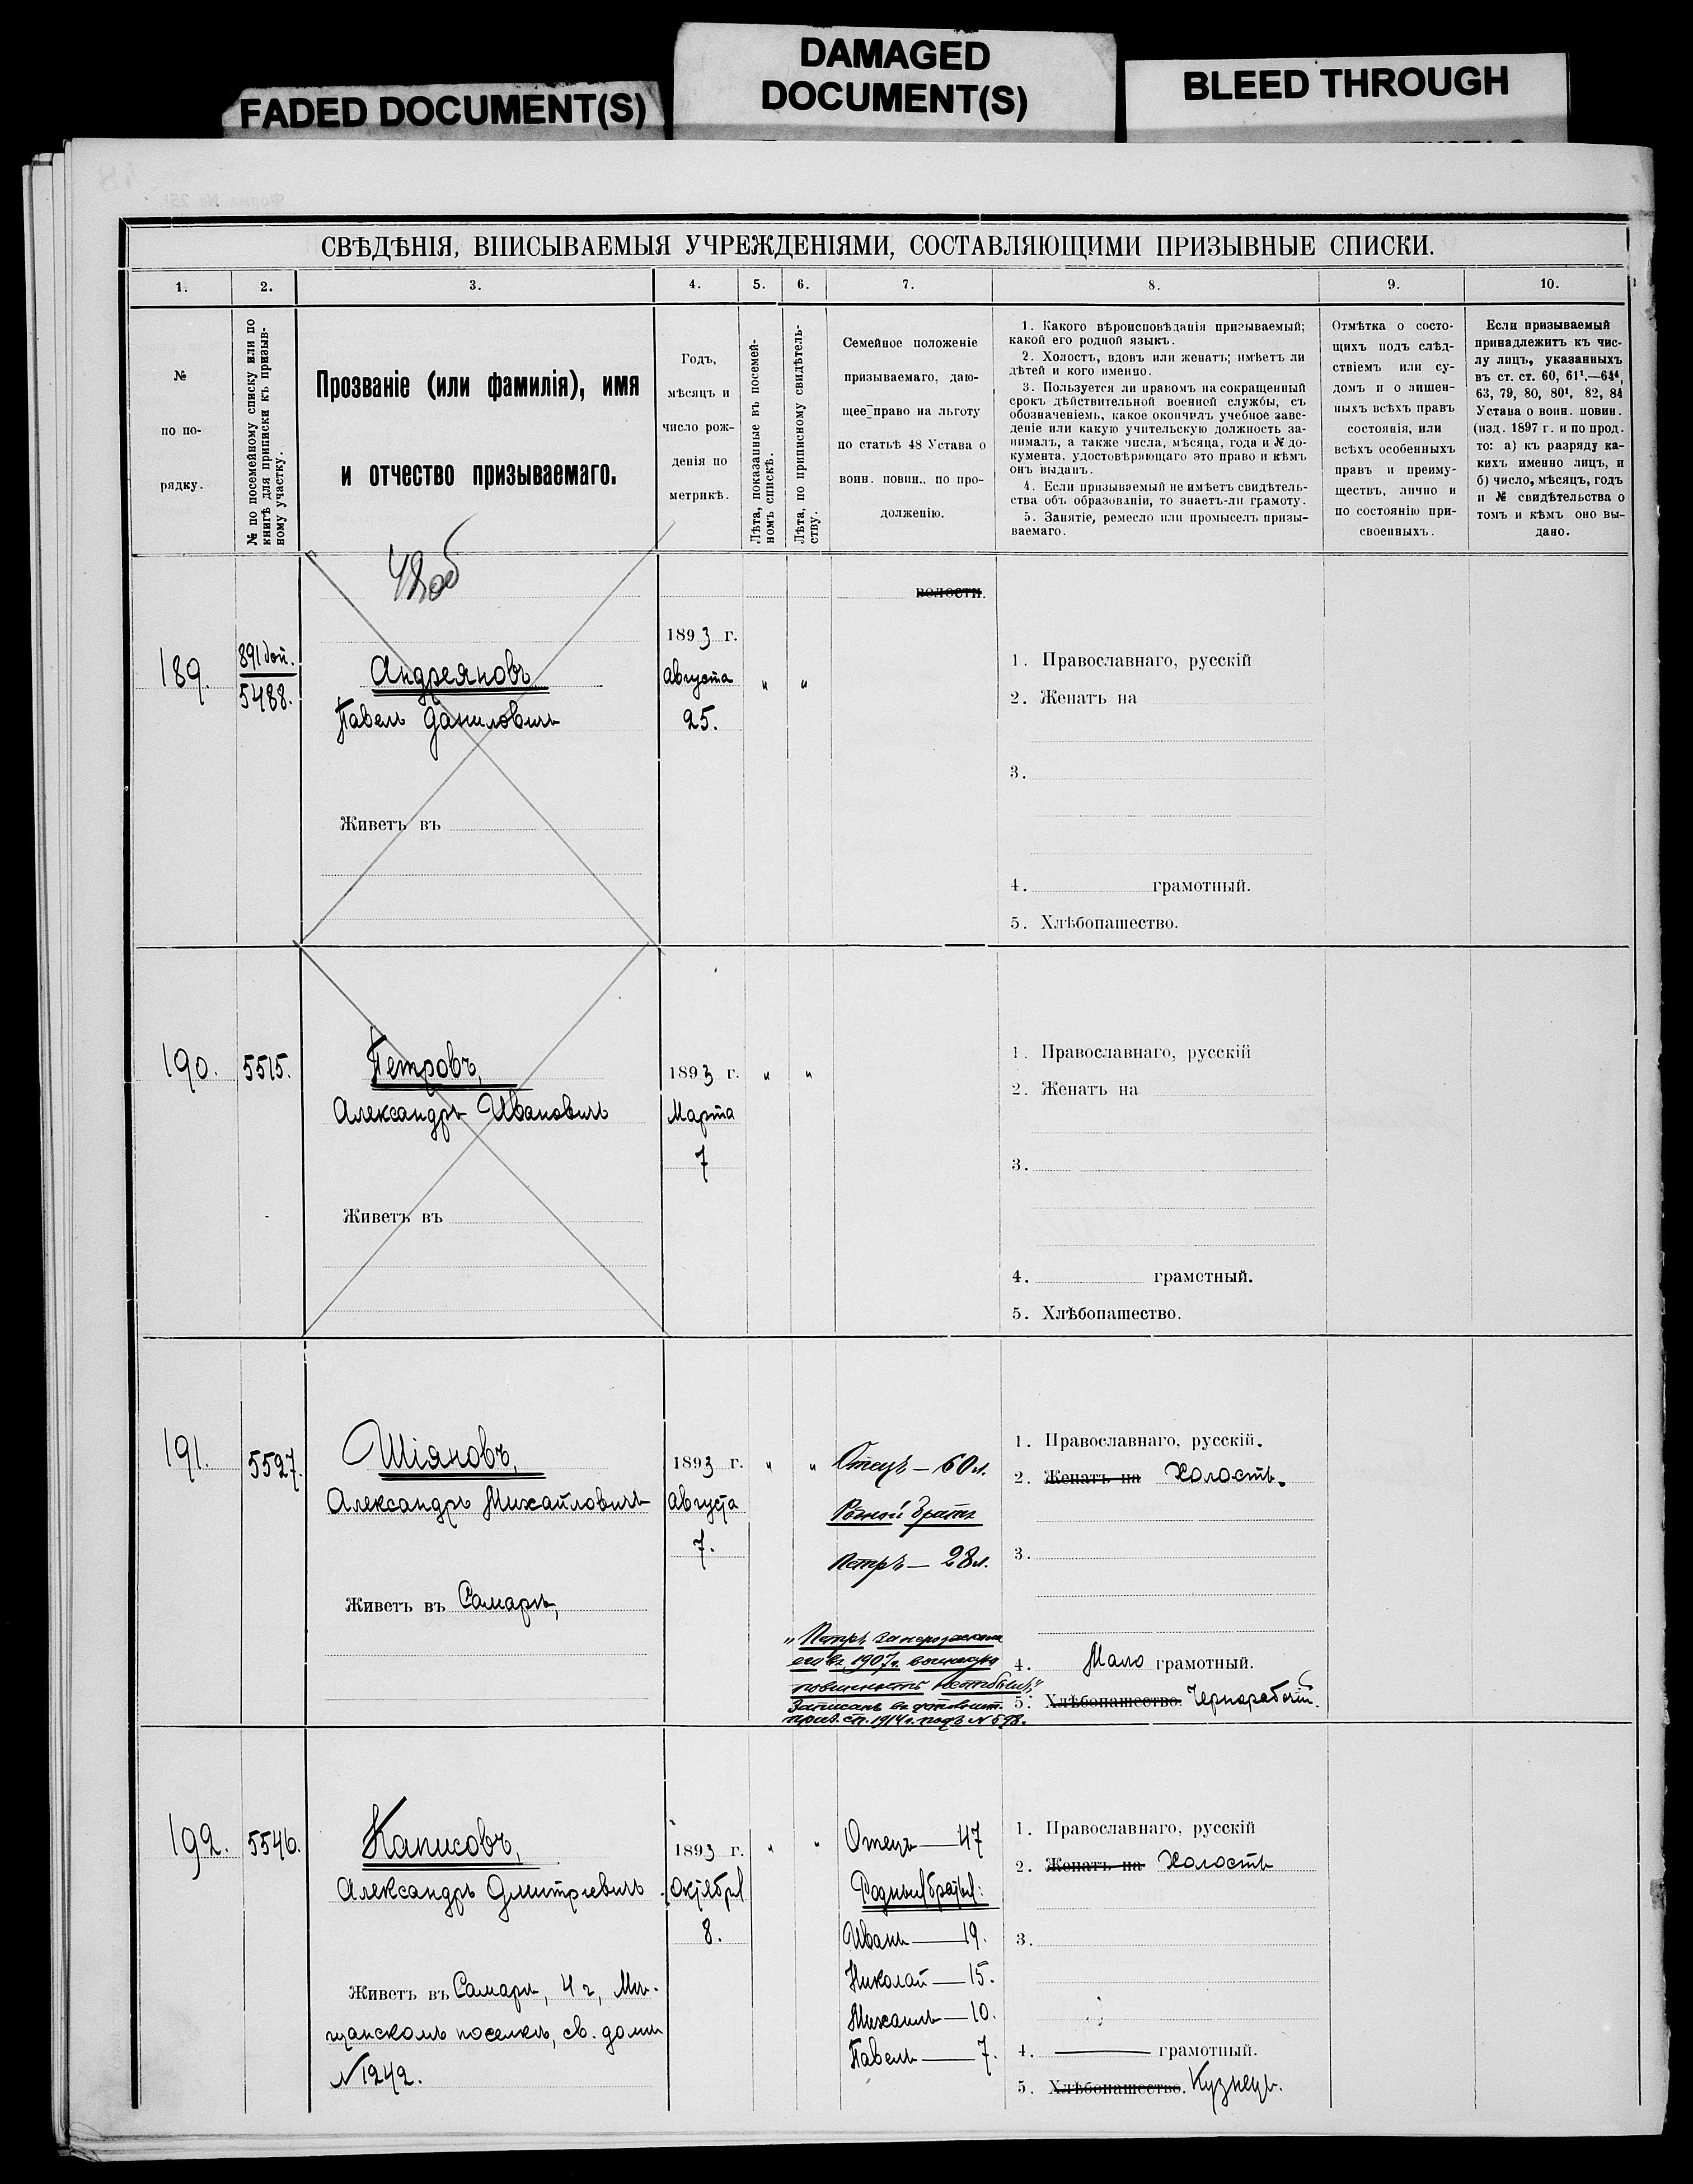 FADED DOCUMENT(S)
DAMAGED
DOCUMENT(S)
BLEED THROUGH
СВѢДѢНІЯ, ВПИСЫВАЕМЫЯ УЧРЕЖДЕНІЯМИ, СОСТАВЛЯЮЩИМИ ПРИЗЫВНЫЕ СПИСКИ.
1. 2. 3. 4. 5. 6. 7. 8. 9. 10.
№
по по-
рядку.
№ по посемейному списку или по
книгѣ для приписки къ призыв-
ному участку.
Прозваніе (или фамилія), имя
и отчество призываемаго.
Годъ,
мѣсяцъ и
число рож-
денія по
метрикѣ.
Лѣта, показанные въ посемей-
номъ спискѣ.
Лѣта, по приписному свидѣтель-
ству.
Семейное положеніе
призываемаго, даю-
щее право на льготу
по статьѣ 48 Устава о
воин. повин., по про-
долженію.
1. Какого вѣроисповѣданія призываемый;
какой его родной языкъ.
2. Холостъ, вдовъ или женатъ; имѣетъ ли
дѣтей и кого именно.
3. Пользуется ли правомъ на сокращенный
срокъ дѣйствительной военной службы, съ
обозначеніемъ, какое окончилъ учебное заве-
деніе или какую учительскую должность за-
нималъ, а также числа, мѣсяца, года и № до-
кумента, удостовѣряющаго это право и кѣмъ
онъ выданъ.
4. Если призываемый не имѣетъ свидѣтель-
ства объ образованіи, то знаетъ-ли грамоту.
5. Занятіе, ремесло или промыселъ призы-
ваемаго.
Отмѣтка о состо-
щихъ подъ слѣд-
ствіемъ или су-
домъ и о лишен-
ныхъ всѣхъ правъ
состоянія, или
всѣхъ особенныхъ
правъ и преиму-
ществъ, лично и
по состоянію при-
своенныхъ.
Если призываемый
принадлежитъ къ чис-
лу лицъ, указанныхъ
въ ст. ст. 60, 61¹.—64⁴,
63, 79, 80, 80¹, 82, 84
Устава о воин. повин.
(изд. 1897 г. и по прод.
то: а) къ разряду ка-
кихъ именно лицъ, и
б) число, мѣсяцъ, годъ
и № свидѣтельства о
томъ и кѣмъ оно вы-
дано.
волости.
189.
891 доп.
5488.
Андреяновъ
Павелъ Даниловичъ
Живетъ въ
1893 г.
Августа
25.
" "
1. Православнаго, русскій
2. Женатъ на
3.
4. грамотный.
5. Хлѣбопашество.
190.
5515.
Петровъ,
Александръ Ивановичъ
Живетъ въ
1893 г.
Марта
7
" "
1. Православнаго, русскій
2. Женатъ на
3.
4. грамотный.
5. Хлѣбопашество.
191.
5527.
Шіяновъ,
Александръ Михайловичъ
Живетъ въ Самарѣ,
1893 г.
Августа
7.
" "
Отецъ — 60 л.
Родной братъ
Петръ — 28 л.
"Петръ
его въ 1907 г. воинскую
повинность не отбылъ"
Записанъ въ
приз. сп. 1914 г. подъ № 598.
1. Православнаго, русскій.
2. Женатъ на Холостъ.
3.
4. Мало грамотный.
5. Хлѣбопашество. Чернорабочій.
192.
5546.
Каписовъ,
Александръ Дмитріевичъ
Живетъ въ Самарѣ, 4 ч, Мѣ-
щанскомъ поселкѣ, св. домъ
№ 1242.
1893 г.
Октября
8.
" "
Отецъ — 47
Родные братья:
Иванъ — 19.
Николай — 15.
Михаилъ — 10.
Павелъ — 7.
1. Православнаго, русскій
2. Женатъ на Холостъ
3.
4. — грамотный.
5. Хлѣбопашество. Кузнецъ.